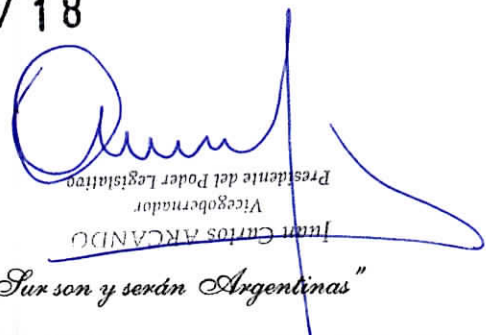 / 18
Juan Carlos ARCANDO
Vicegobernador
Presidente del Poder Legislativo
Sur son y serán Argentinas"